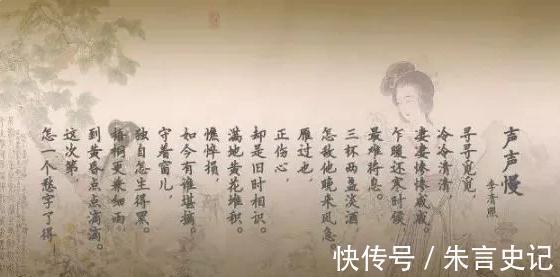 声声慢
李清照
寻寻觅觅，
冷冷清清，
凄凄惨惨戚戚。
乍暖还寒时候，
最难将息。
三杯两盏淡酒，
怎敌他晚来风急
雁过也，
正伤心，
却是旧时相识。
满地黄花堆积。
憔悴损，
如今有谁堪摘。
守着窗儿，
独自怎生得黑。
梧桐更兼细雨，
到黄昏点点滴滴。
这次第，
怎一个愁字了得
快传号 / 朱言史记